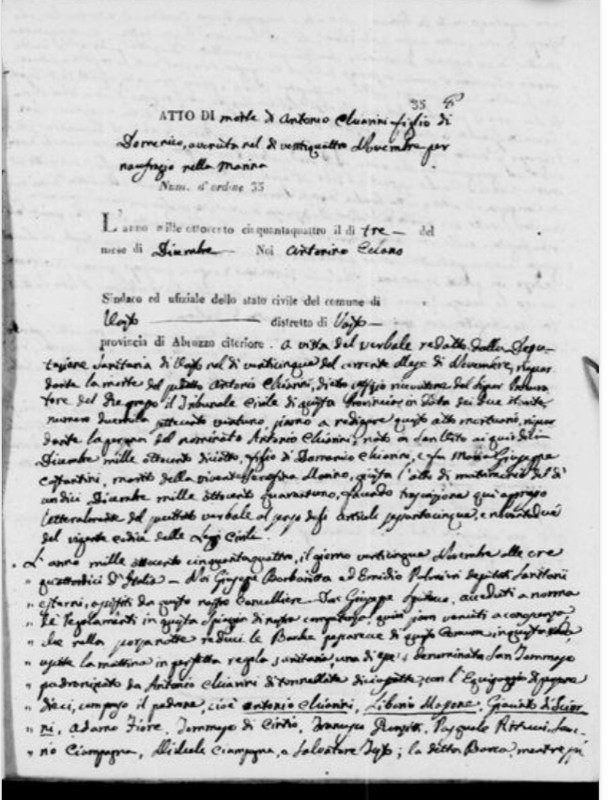 35
ATTO DI morte di Antonio Chianni figlio di
Domenico, avvenuta nel dì ventiquattro Novembre per
naufragio nella Marina
Num. d'ordine 33
L'anno mille ottocento cinquantaquattro il dì tre del
mese di Dicembre Noi Antonino Celano
Sindaco ed ufiziale dello stato civile del comune di
Vasto distretto di Vasto
provincia di Abruzzo citeriore. a vista del verbale redatto dalla Depu-
tazione Sanitaria di Vasto nel dì venticinque del corrente Mese di Novembre, riguar-
dante la morte del Antonio Chianni, dietro officio ricevutone dal Signor Procura-
tore del Re presso il Tribunale Civile di questa Provincia in data dei due
numero duemila ottocento ventuno, siamo a redigere questo atto mortuario, riguar-
dante la persona del nominato Antonio Chianni, nato in San Vito ai quindici
Dicembre mille ottocento diciotto, figlio di Domenico Chianni, e fu Maria Giuseppe
Costantini, marito della vivente Serafina giusta l'atto di matrimonio del dì
undici Dicembre mille ottocento quarantuno, facendo trascrizione qui appresso
letteralmente del verbale ai sensi degli articoli sessantacinque, e novantadue
del vigente codice delle Leggi Civili.
L'anno mille ottocento cinquantaquattro, il giorno venticinque Novembre alle ore
quattordici d'Italia - Noi Giuseppe Barbarotta ed Emidio deputati Sanitarii
esterni, assistiti da questo nostro Cancelliere Don Giuseppe acceduti a norma
de' Regolamenti in questa spiaggia di nostra competenza, quivi siam venuti a
che nella scorsa notte reduci le Barche pescarecce di questo Comune in questa
uscite la mattina in perfetta regola sanitaria una di esse denominata San Tommaso
padronizzata da Antonio Chianni di tonnellate diciassette con l'Equipaggio di persone
dieci, compreso il padrone, cioè Antonio Chianni, Liborio Giacinto di
ni, Adamo Fiore, Tommaso di Cintio, Francesco Pasquale
nio Ciampagna, Michele Ciampagna, e Salvatore la detta Barca, mentre